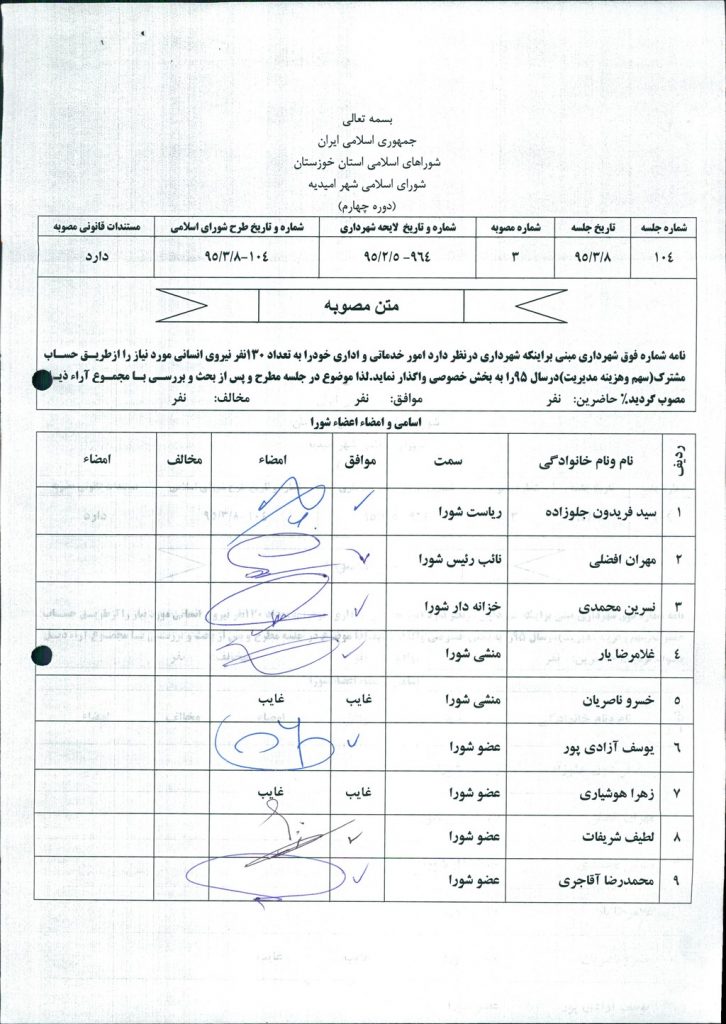 بسمه تعالی
جمهوری اسلامی ایران
شوراهای اسلامی استان خوزستان
شورای اسلامی شهر امیدیه
(دوره چهارم)
شماره جلسه تاریخ جلسه شماره مصوبه شماره و تاریخ لایحه شهرداری شماره و تاریخ طرح شورای اسلامی مستندات قانونی مصوبه
۱۰۴ ۹۵/۳/۸ ۳ ۹۶۴- ۹۵/۲/۵ ۱۰۴-۹۵/۳/۸ دارد
متن مصوبه
نامه شماره فوق شهرداری مبنی براینکه شهرداری درنظر دارد امور خدماتی و اداری خودرا به تعداد ۱۳۰نفر نیروی انسانی مورد نیاز را ازطریق حساب
مشترک(سهم وهزینه مدیریت)درسال ۹۵را به بخش خصوصی واگذار نماید.لذا موضوع در جلسه مطرح و پس از بحث و بررسی با مجموع آراء
مصوب گردید.٪ حاضرین: نفر موافق: نفر مخالف: نفر
اسامی و امضاء اعضاء شورا
ردیف نام ونام خانوادگی سمت موافق امضاء مخالف امضاء
۱ سید فریدون جلوزاده ریاست شورا
۲ مهران افضلی نائب رئیس شورا
۳ نسرین محمدی خزانه دار شورا
۴ غلامرضا یار منشی شورا
۵ خسرو ناصریان منشی شورا غایب غایب
۶ یوسف آزادی پور عضو شورا
۷ زهرا هوشیاری عضو شورا غایب غایب
۸ لطیف شریفات عضو شورا
۹ محمدرضا آقاجری عضو شورا